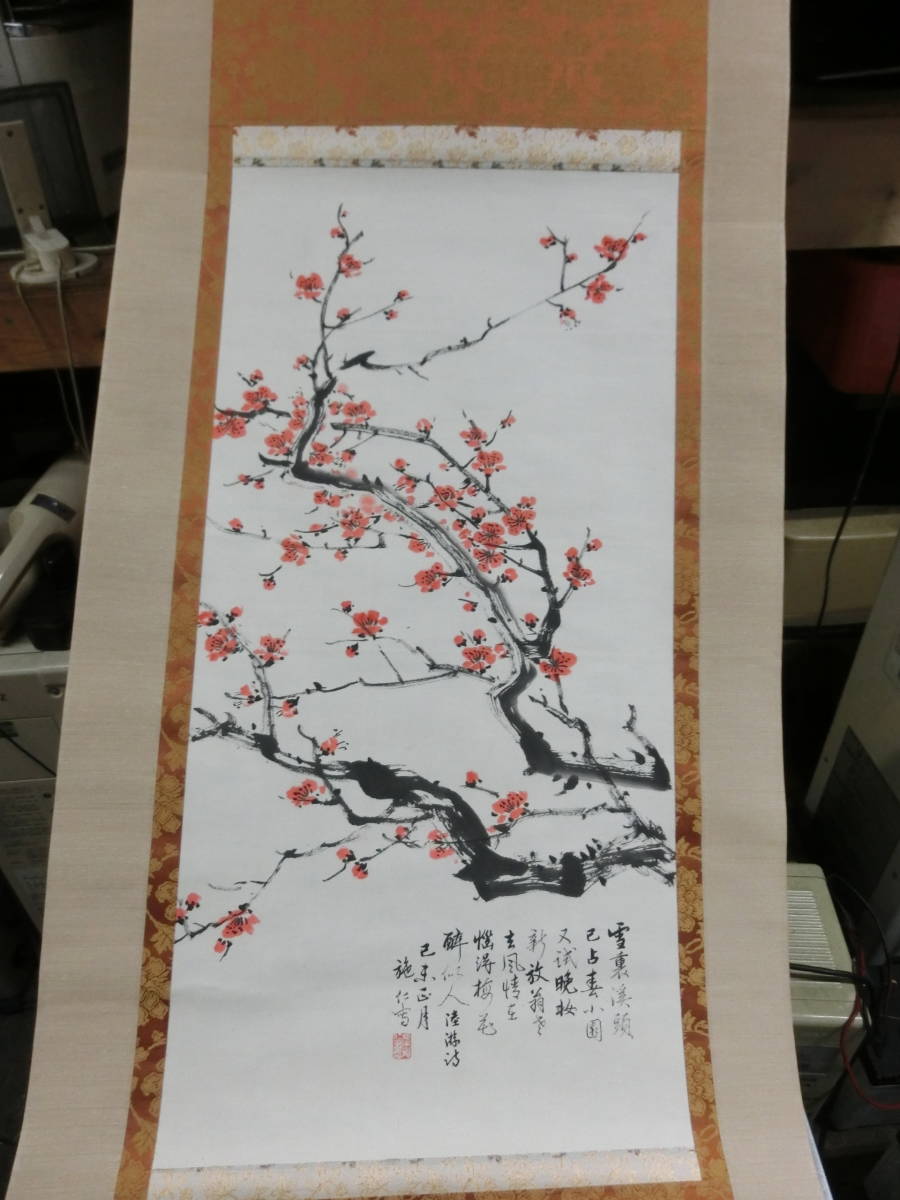 雪裏溪頭
已占春小園
又試晚妝
新放翁老
去風情在
惱得梅花
醉似人陸游詩
己未正月
施仁寫